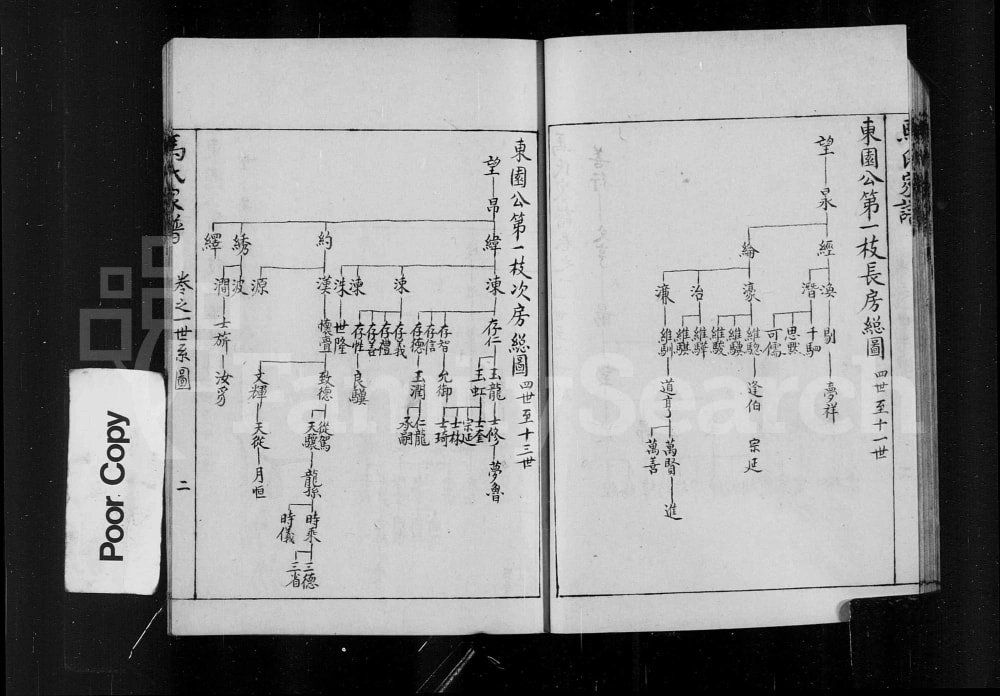 東園公第一枝長房総圖 四世至十一世
望 泉
經 綸
渙 潛 濠 治 濂
剔 千駟 思默 可儒 維騘 維驥 維駿 維驛 維騏 維馴
夢祥 逢伯 道亨
宗延 萬賢 萬善
進
東園公第一枝次房総圖 四世至十三世
望 昂
緯 約 綉 繹
涑 洙 漢 源 波 澗
存仁 存智 存信 存德 存義 存禮 存善 存性 世隆 懷疊 士旂
玉龍 玉虹 允御 玉潤 良驥 致德 文輝 汝
士修 士奎 宗延 士林 士琦 仁龍 承嗣 從駕 天驥 天從
夢魯 龍孫 月恒
時乘 時儀
三德 三省
馬氏家譜 卷之一世系圖 二
Poor Copy
FamilySearch